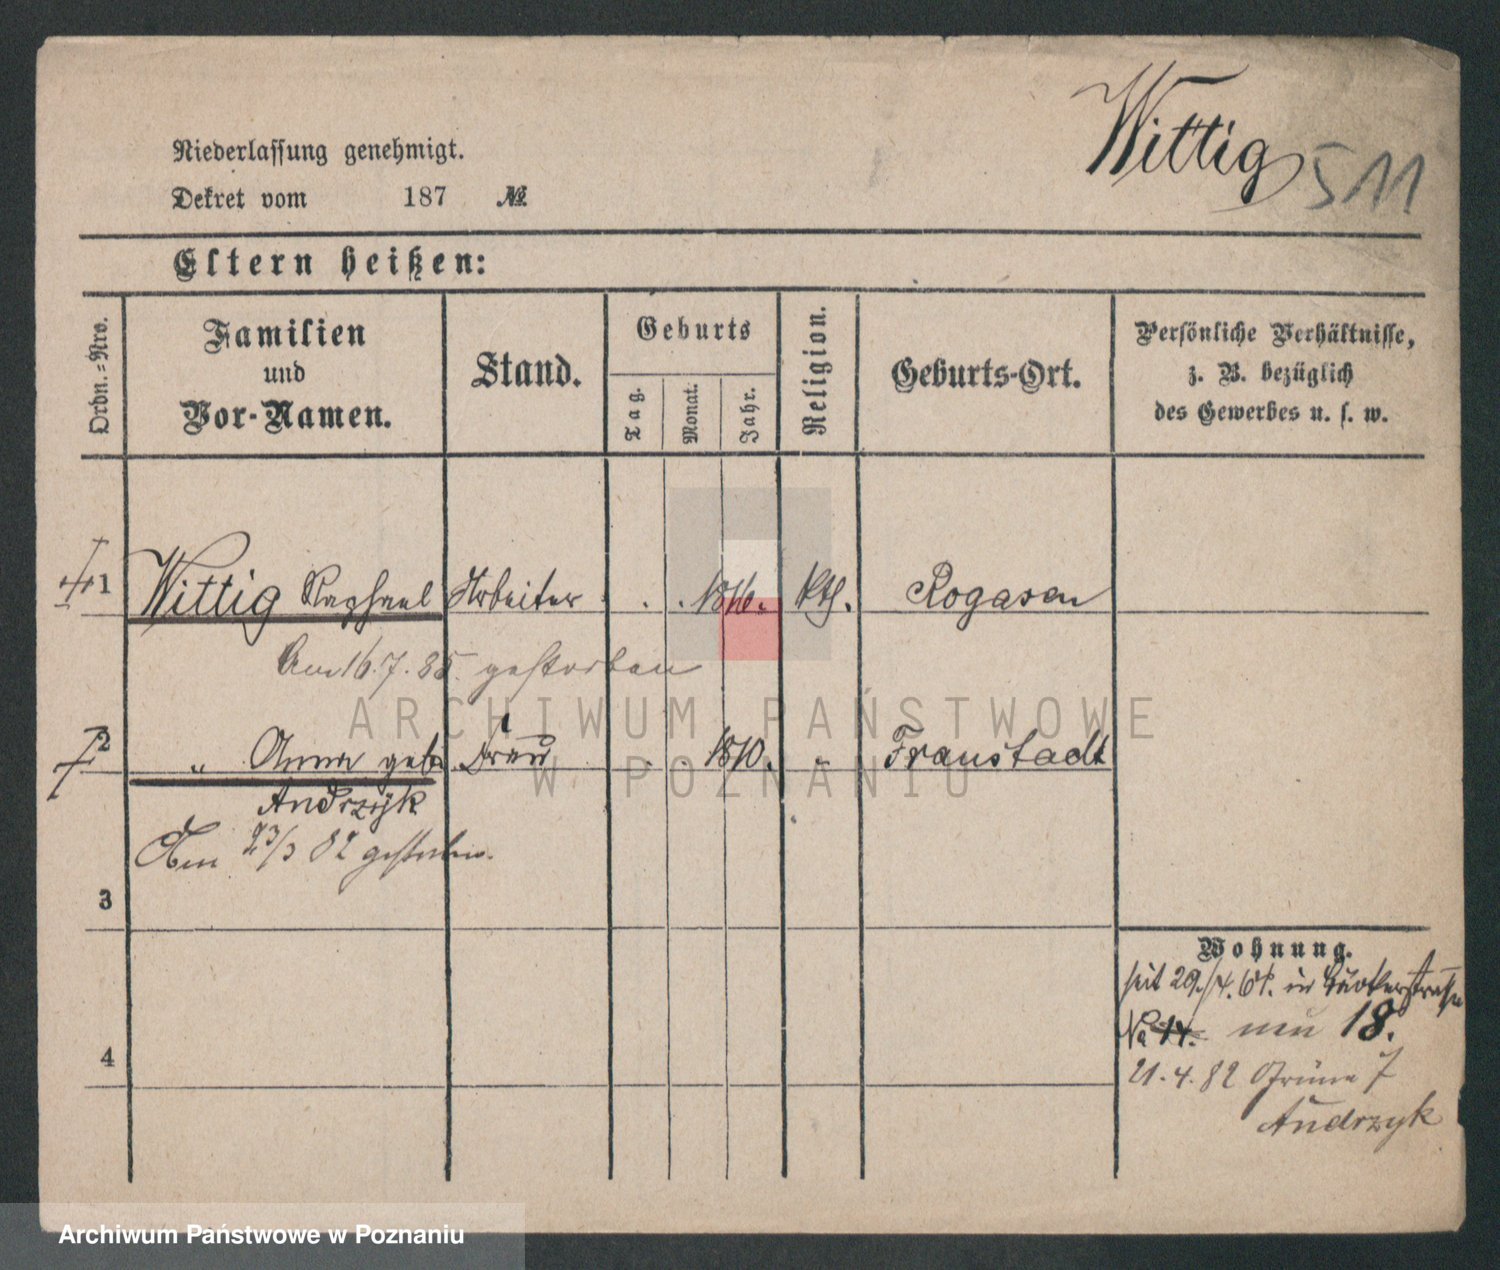 Wittig 511
Niederlassung genehmigt.
Dekret vom 187 №
Eltern heißen:
Ordn.-Nro.
Familien
und
Vor-Namen.
Stand.
Geburts
Tag.
Monat.
Jahr.
Religion.
Geburts-Ort.
Persönliche Verhältnisse,
z. B. bezüglich
des Gewerbes u. s. w.
1 Wittig Raphael Arbeiter . . 1816. kth. Rogasen
Am 16.7.85. gestorben
2 " Anna geb. Frau . . 1810. " Fraustadt
Andrzyk
Am 23/3 82 gestorben.
3
4
Wohnung.
seit 29./4. in
No 14. neu 18.
21.4.82 Grüne 7
Andrzyk
ARCHIWUM PAŃSTWOWE
W POZNANIU
Archiwum Państwowe w Poznaniu